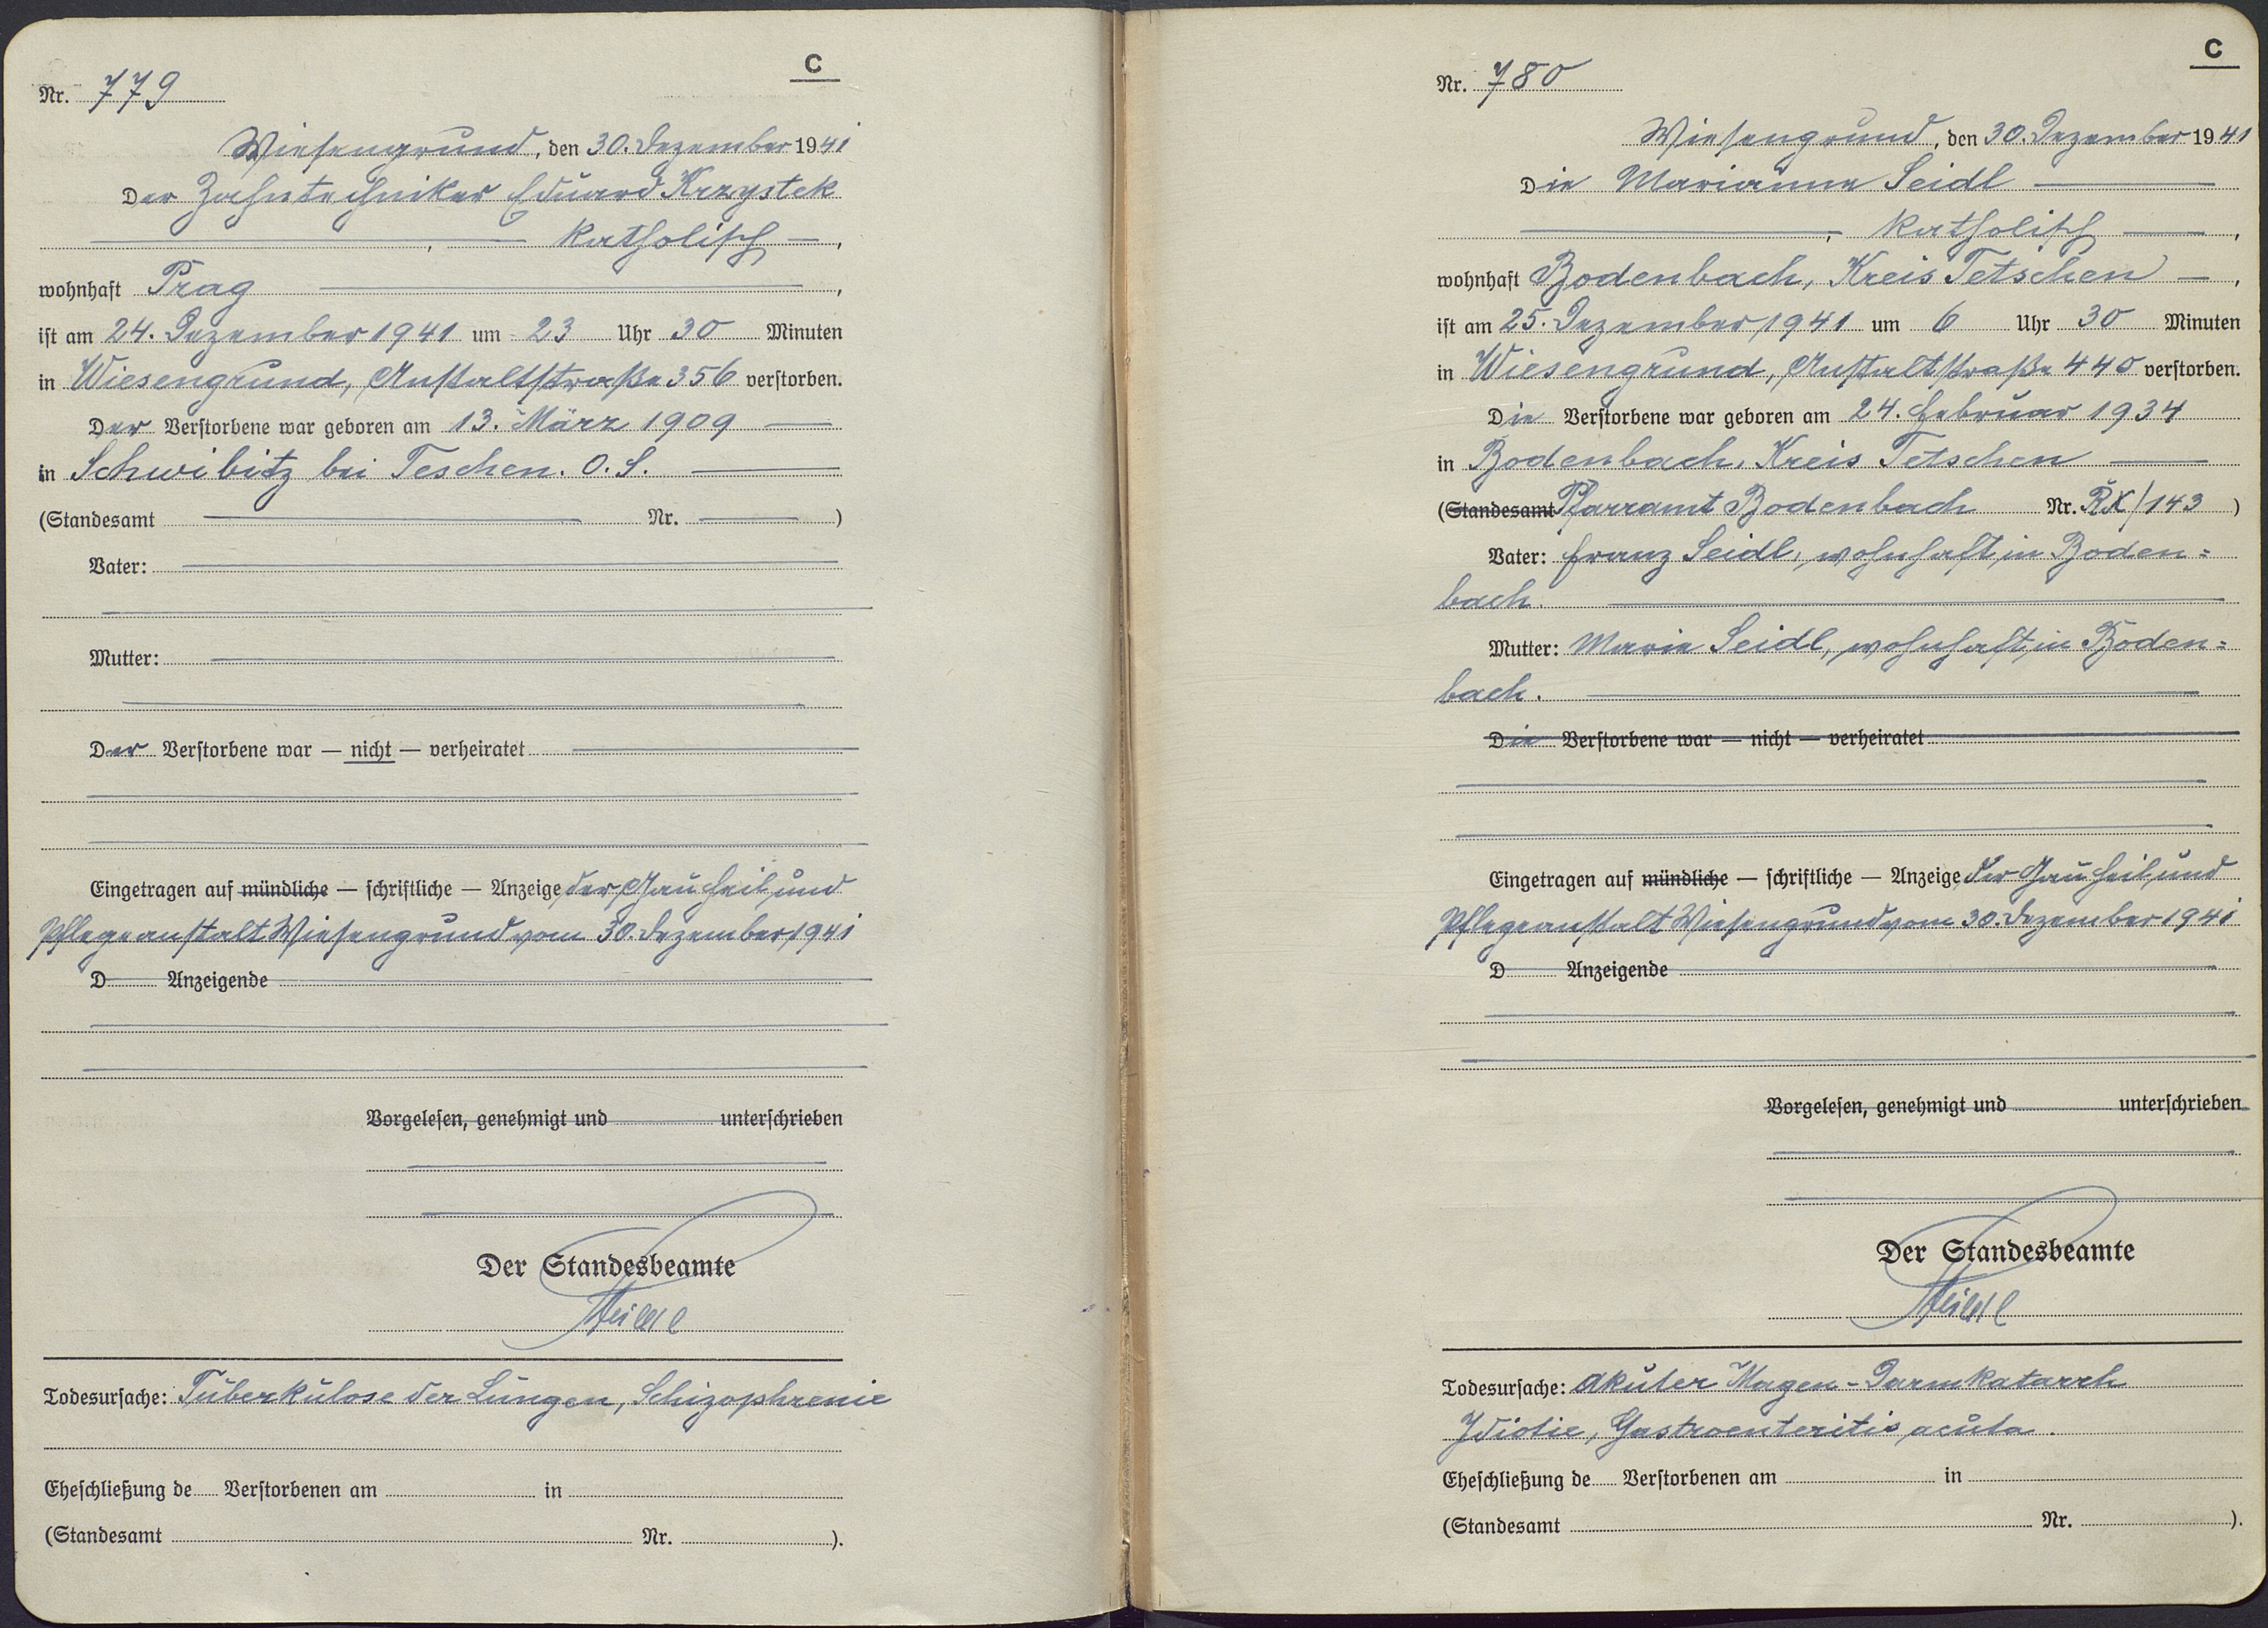 C
Nr. 779
Wiesengrund, den 30. Dezember 1941
Der Zahntechniker Eduard Krzystek
, katholisch ,
wohnhaft Prag ,
ist am 24. Dezember 1941 um 23 Uhr 30 Minuten
in Wiesengrund, Anstaltstraße 356 verstorben.
Der Verstorbene war geboren am 13. März 1909
in Schwibitz bei Teschen. O.S.
(Standesamt Nr. )
Vater:
Mutter:
Der Verstorbene war — nicht — verheiratet
Eingetragen auf mündliche — schriftliche — Anzeige der Gau Heil und
Pflegeanstalt Wiesengrund vom 30. Dezember 1941
D Anzeigende
Vorgelesen, genehmigt und unterschrieben
Der Standesbeamte
Todesursache: Tuberkulose der Lungen, Schizophrenie
Eheschließung de Verstorbenen am in
(Standesamt Nr. ).
C
Nr. 780
Wiesengrund, den 30. Dezember 1941
Die Marianne Seidl
, katholisch ,
wohnhaft Bodenbach, Kreis Tetschen ,
ist am 25. Dezember 1941 um 6 Uhr 30 Minuten
in Wiesengrund, Anstaltstraße 440 verstorben.
Die Verstorbene war geboren am 24. Februar 1934
in Bodenbach, Kreis Tetschen
(Standesamt Pfarramt Bodenbach Nr. RX/143 )
Vater: Franz Seidl, wohnhaft in Boden=
bach.
Mutter: Marie Seidl, wohnhaft in Boden=
bach.
Die Verstorbene war — nicht — verheiratet
Eingetragen auf mündliche — schriftliche — Anzeige der Gau Heil und
Pflegeanstalt Wiesengrund vom 30. Dezember 1941
D Anzeigende
Vorgelesen, genehmigt und unterschrieben
Der Standesbeamte
Todesursache: Akuter Magen-Darmkatarrh
Idiotie, Gastroenteritis acuta.
Eheschließung de Verstorbenen am in
(Standesamt Nr. ).